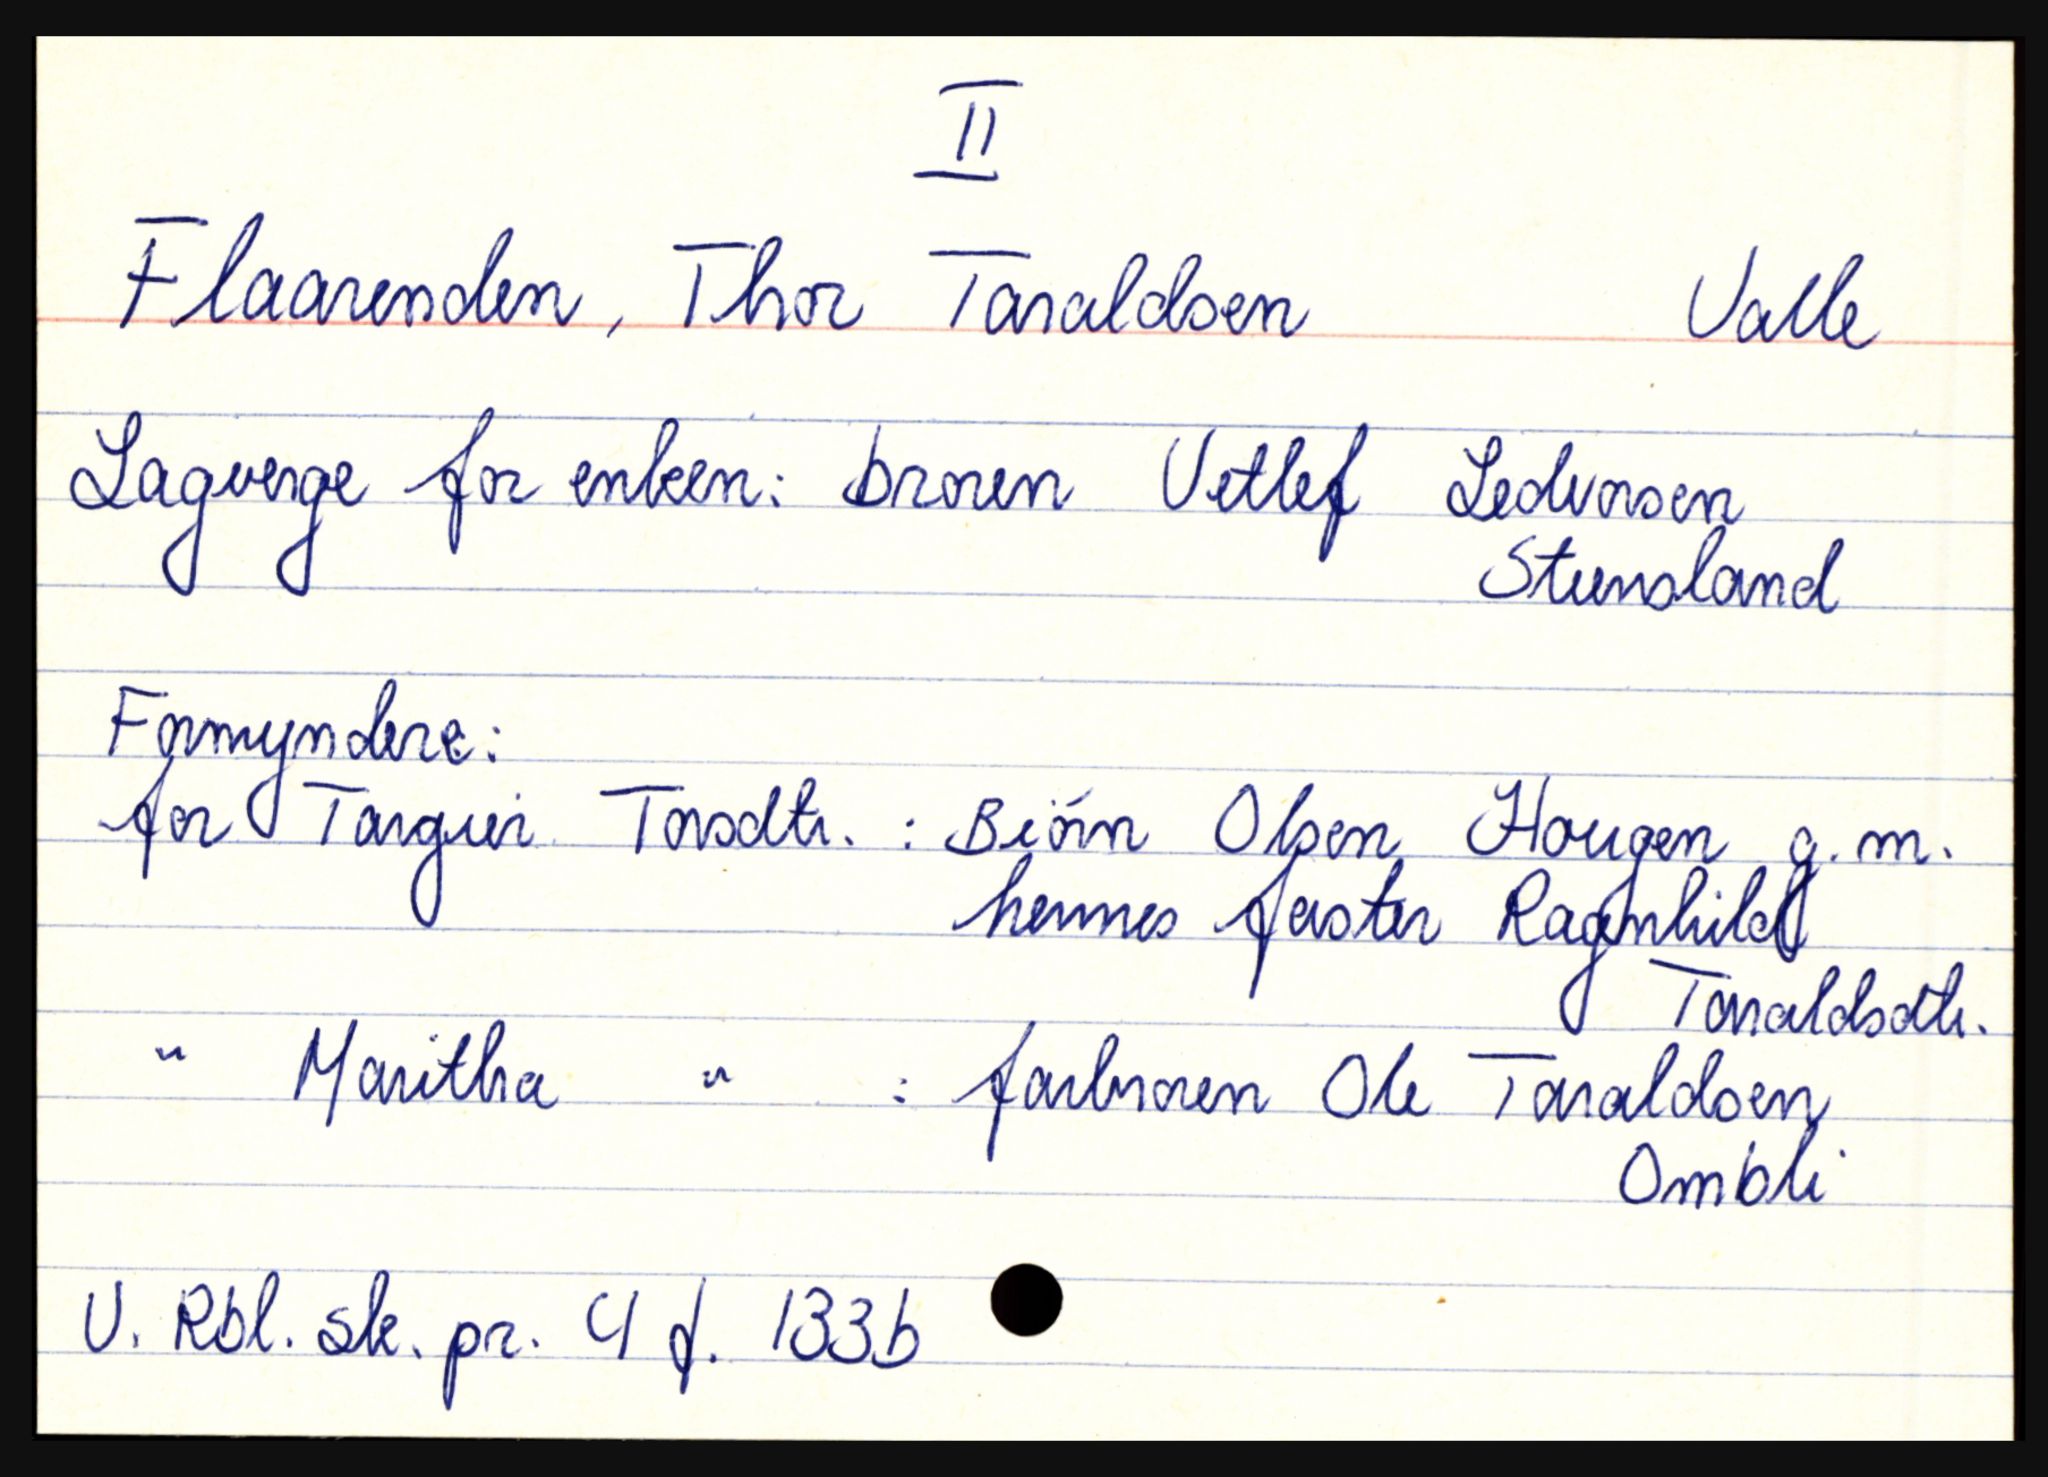 II
Flaarenden, Thor Taraldsen Valle
Lagverge for enken: broren Vetlef Ledvorsen
Stunsland
Formyndere:
for Targier Torsdtr. : Biórn Olsen Hougen g.m.
hennes faster Ragnhild
Taraldsdtr.
" Maritha " : farbroren Ole Taraldsen
Ombli
V. Rbl. sk. pr. 4 f. 133b